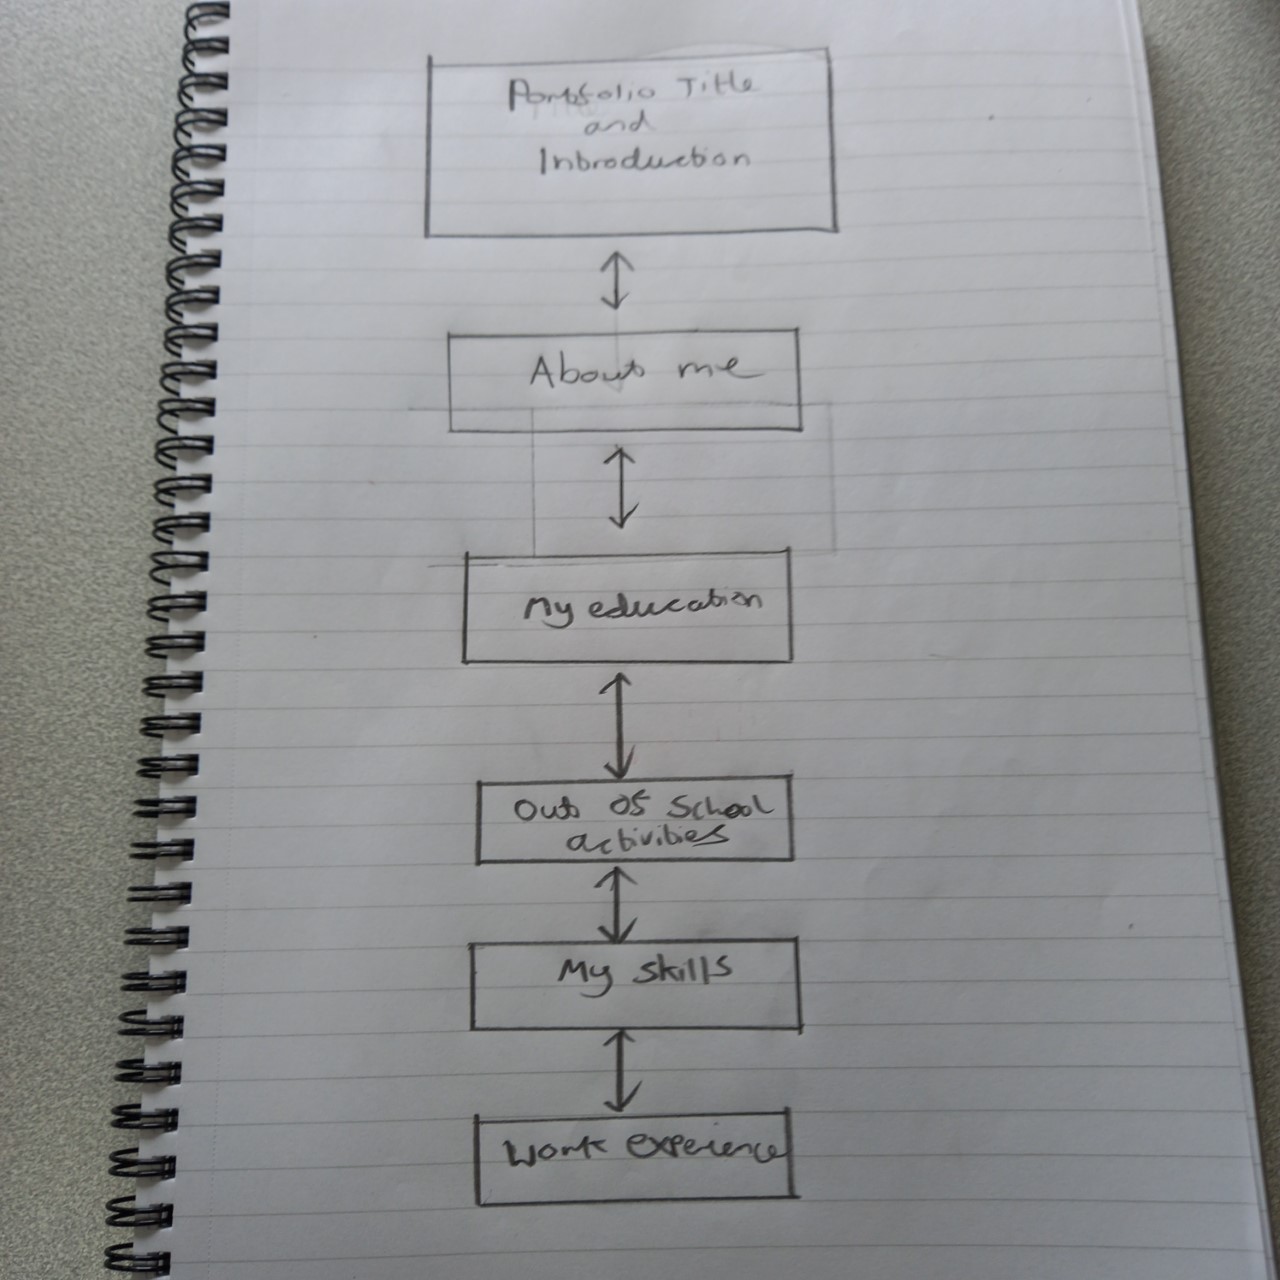 Portfolio Title
and
Introduction
About me
My education
Out of School
activities
My skills
Work experience